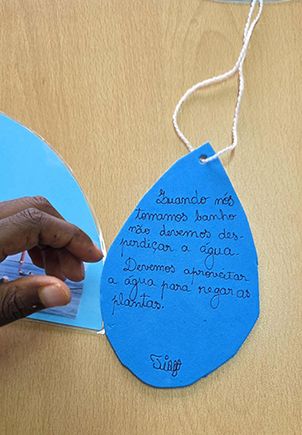 Quando nós
tomamos banho
não devemos des-
perdiçar a água.
Devemos aproveitar
a água para regar as
plantas.